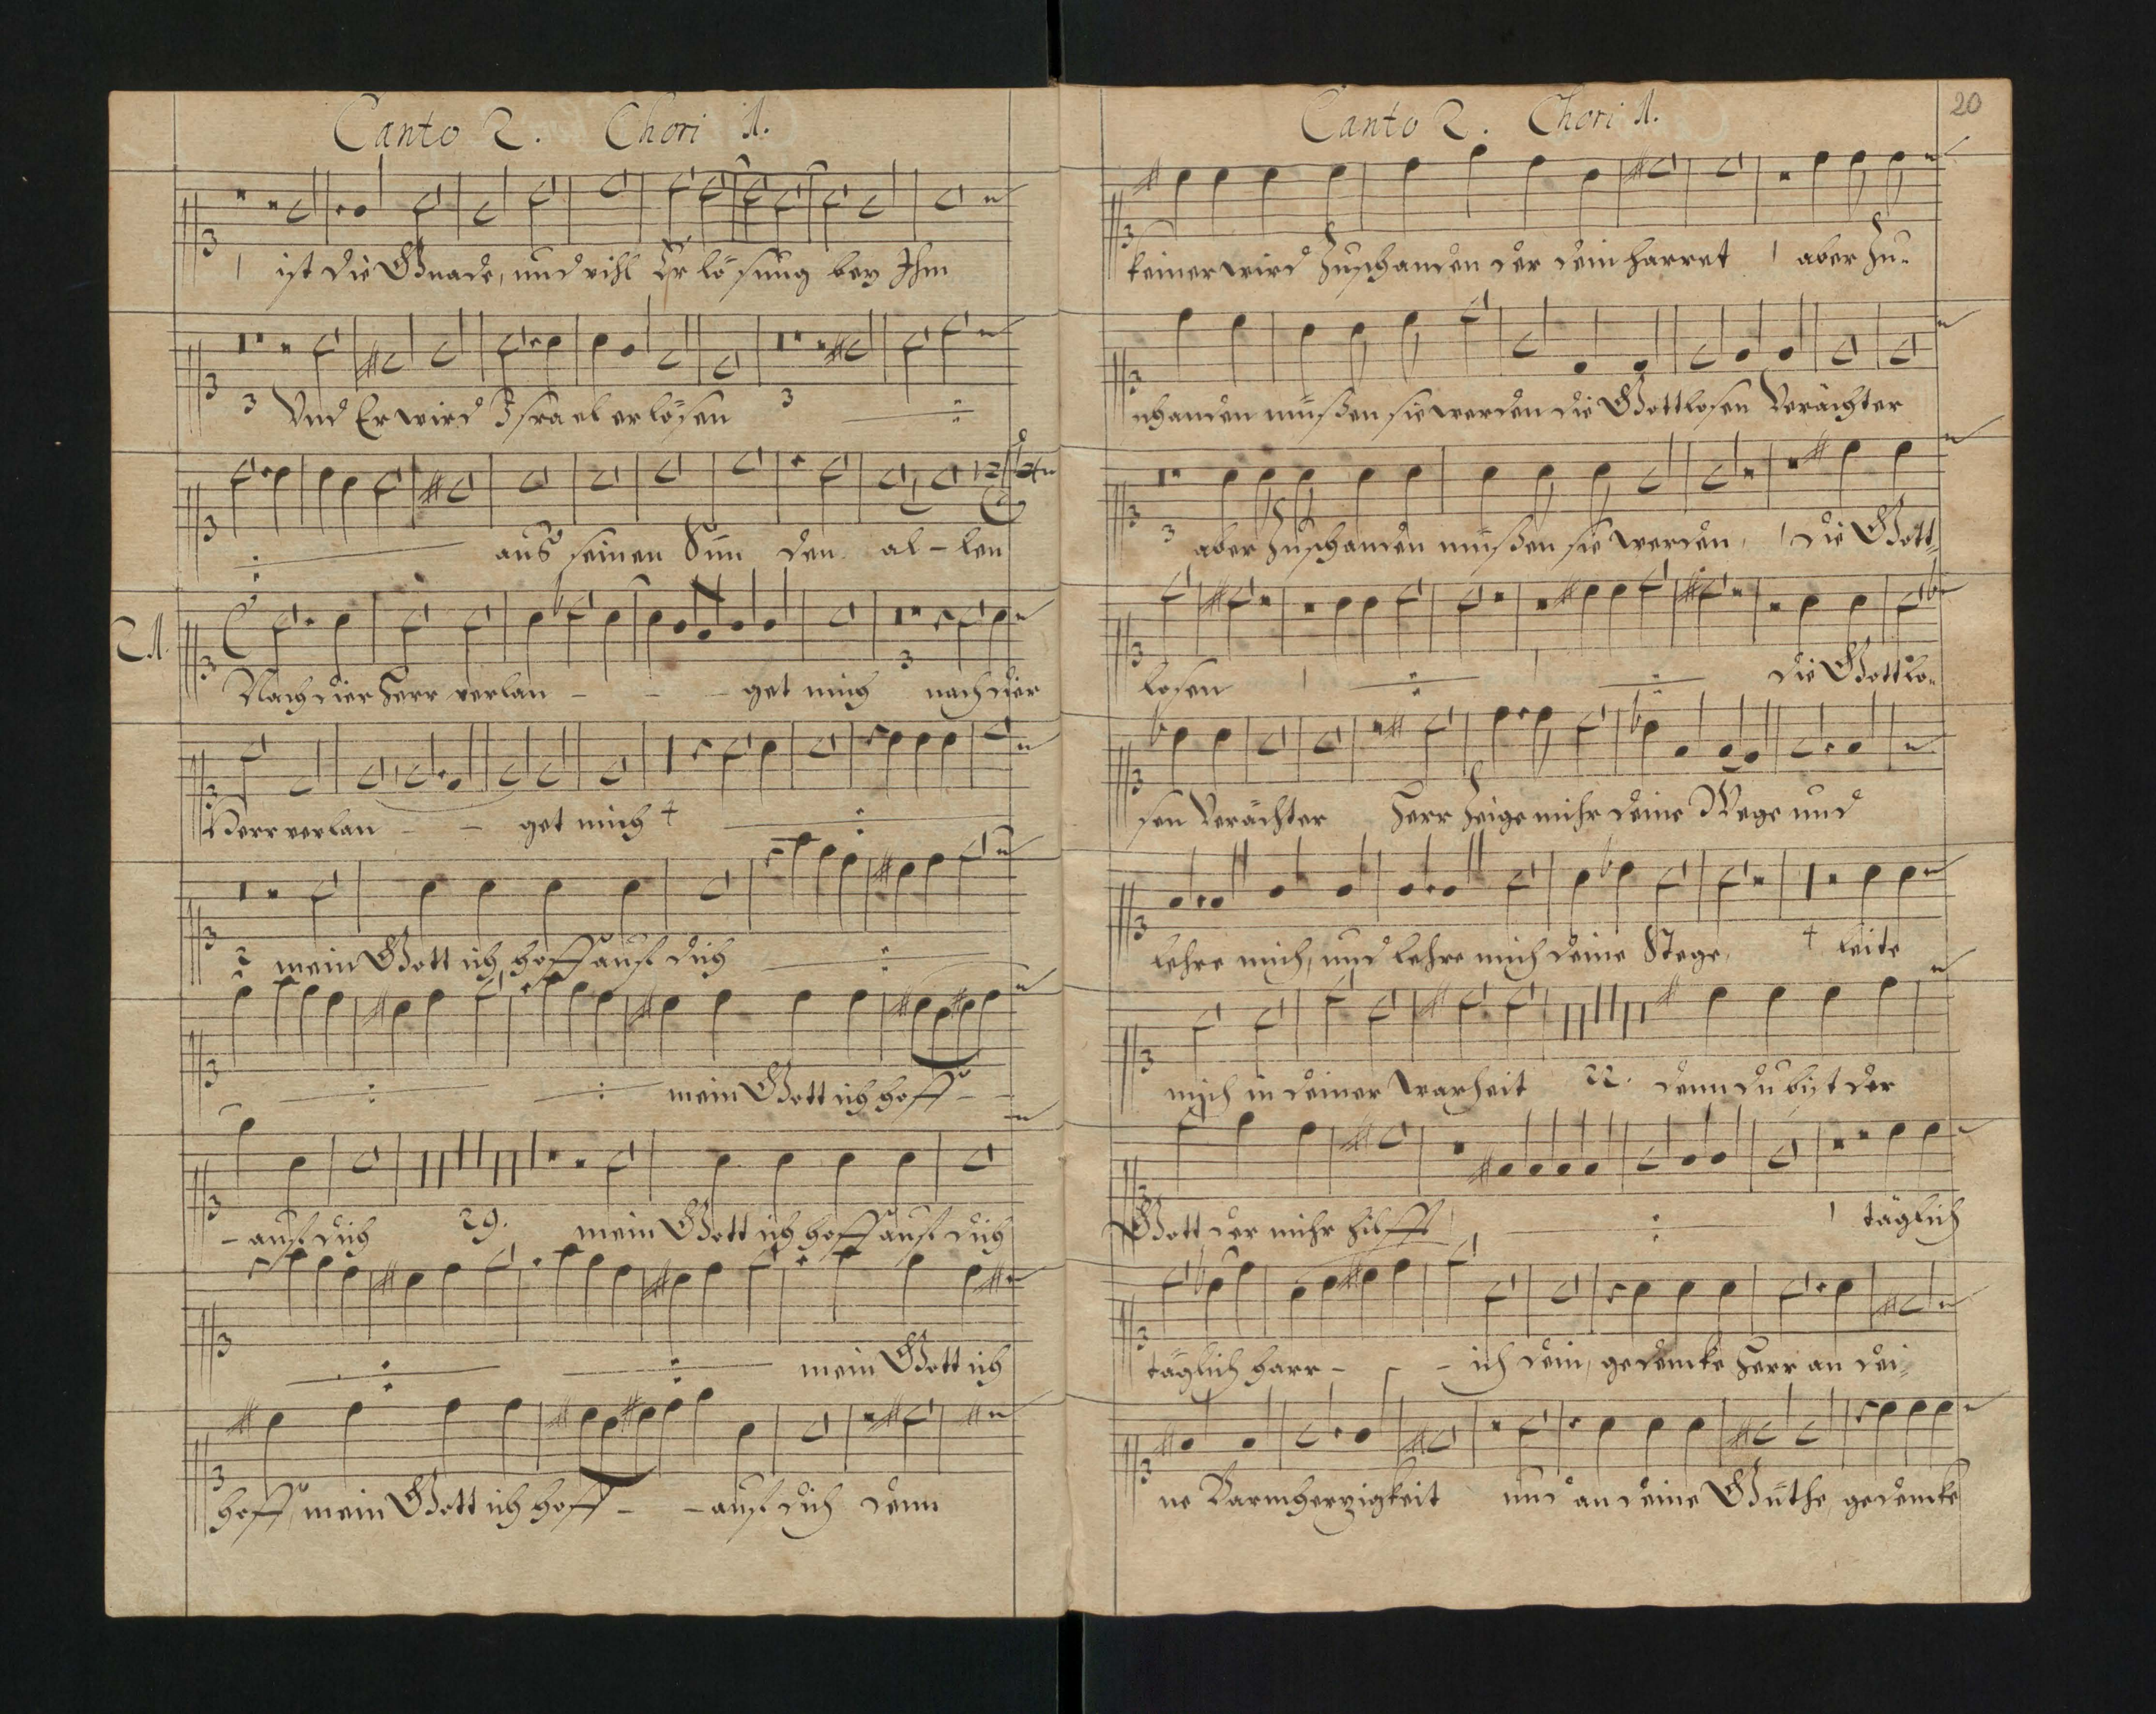 Canto 2. Chori 1.
ist die Gnade, und vihl Erlösung bey Ihm
3 Und Er wird Israel erlösen 3
aus seinen Sünden allen
21.
Nach dier Herr verlan - - - get mich 3 nach dier
Herr verlan - - get mich 4
2 mein Gott ich hoff auf dich
mein Gott ich hoff - -
- auf dich 29. mein Gott ich hoff auf dich
mein Gott ich
hoff, mein Gott ich hoff - - auf dich denn
Canto 2. Chori 1.
20
keiner wird zuschanden der dein harret 1 aber zu=
schanden müßen sie werden die Gottlosen Verächter
3 aber zuschanden müßen sie werden, 1 die Gott=
losen die Gottlo=
sen Verächter Herr zeige mihr deine Wege und
lehre mich, und lehre mich deine Stege, 4 leite
mich in deiner warheit 22. denn du bist der
Gott der mihr hilfft, 1 täglich
täglich harr - - - ich dein, gedencke Herr an dei=
ne Barmherzigkeit und an deine Güthe, gedencke